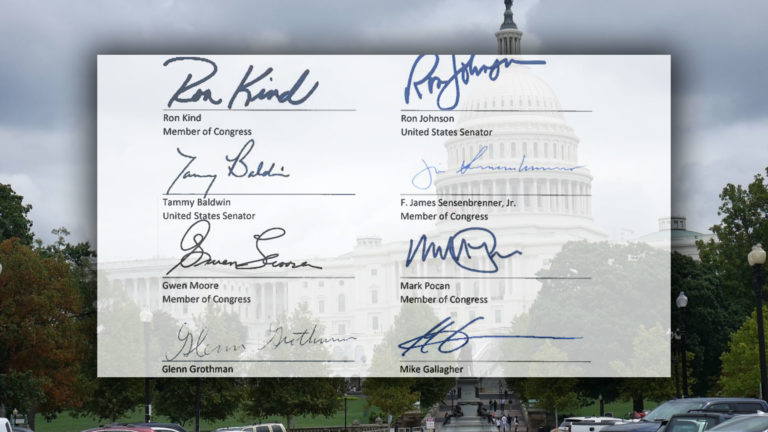 Ron Kind
Ron Kind
Member of Congress
Ron Johnson
Ron Johnson
United States Senator
Tammy Baldwin
Tammy Baldwin
United States Senator
Jim Sensenbrenner
F. James Sensenbrenner, Jr.
Member of Congress
Gwen Moore
Gwen Moore
Member of Congress
Mark Pocan
Member of Congress
Glenn Grothman
Glenn Grothman
Mike Gallagher